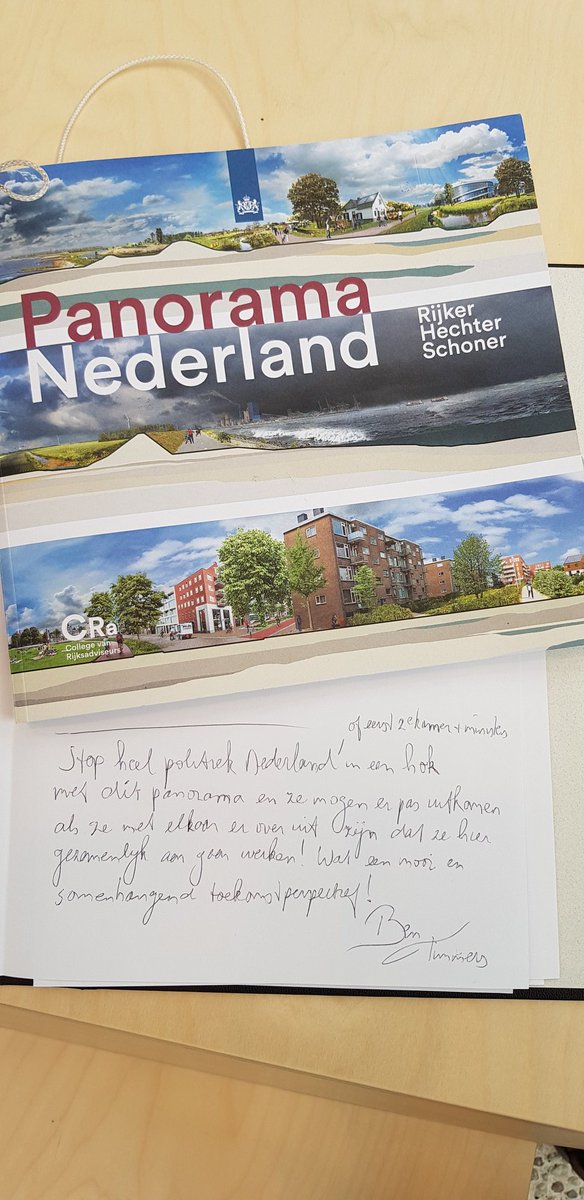 Panorama
Nederland
Rijker
Hechter
Schoner
CRa
College van
Rijksadviseurs
of eerst 2e kamer + ministers
Stop heel politiek Nederland in een hok
met dit panorama en ze mogen er pas uitkomen
als ze met elkaar er over uit zijn dat ze hier
gezamenlijk aan gaan werken! Wat een mooi en
samenhangend toekomstperspectief!
Ben
Timmers